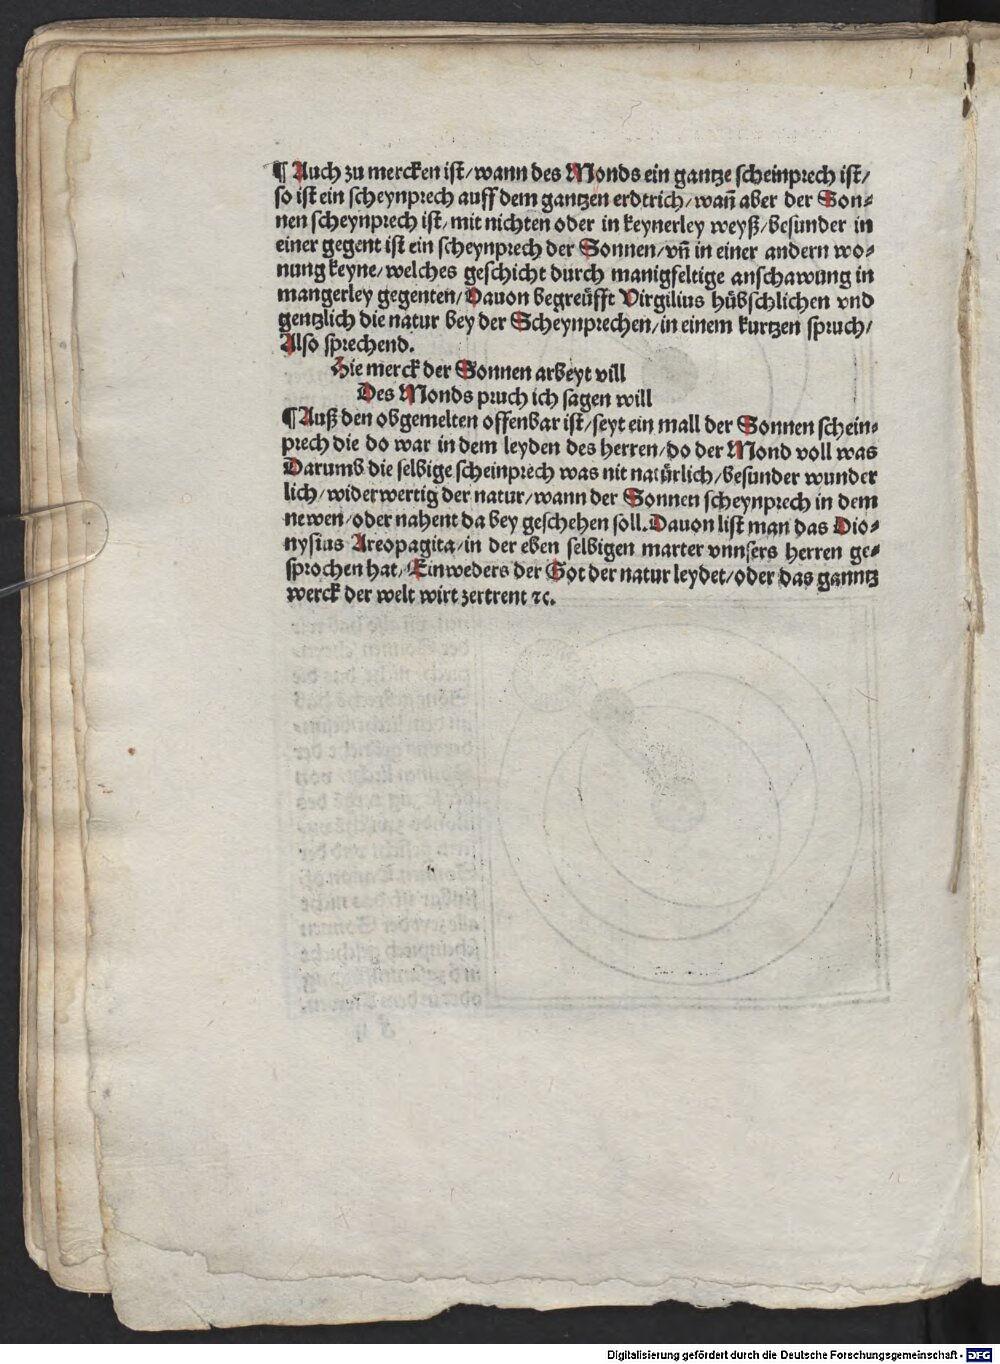 ¶ Auch zu mercken ist/wann des Monds ein gantze scheinprech ist/
so ist ein scheynprech auff dem gantzen erdtrich/wañ aber der Son⸗
nen scheynprech ist/mit nichten oder in keynerley weyß/besunder in
einer gegent ist ein scheynprech der Sonnen/vñ in einer andern wo⸗
nung keyne/welches geschicht durch manigfeltige anschawung in
mangerley gegenten/Dauon begreüfft Virgilius hübschlichen vnd
gentzlich die natur bey der Scheynprechen/in einem kurtzen spruch/
Also sprechend.
Hie merck der Sonnen arbeyt vill
Des Monds pruch ich sagen will
¶ Auß den obgemelten offenbar ist/seyt ein mall der Sonnen schein⸗
prech die do war in dem leyden des herren/do der Mond voll was
Darumb die selbige scheinprech was nit natürlich/besunder wunder
lich/widerwertig der natur/wann der Sonnen scheynprech in dem
newen/oder nahent da bey geschehen soll. Dauon list man das Dio⸗
nysius Areopagita/in der eben selbigen marter vnnsers herren ge⸗
sprochen hat/Einweders der Got der natur leydet/oder das ganntz
werck der welt wirt zertrent ⁊c.
Digitalisierung gefördert durch die Deutsche Forschungsgemeinschaft - DFG